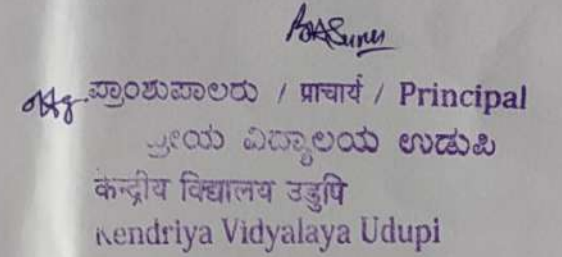 ಪ್ರಾಂಶುಪಾಲರು / प्राचार्य / Principal
ವಿದ್ಯಾಲಯ ಉಡುಪಿ
केन्द्रीय विद्यालय उडुपि
Kendriya Vidyalaya Udupi